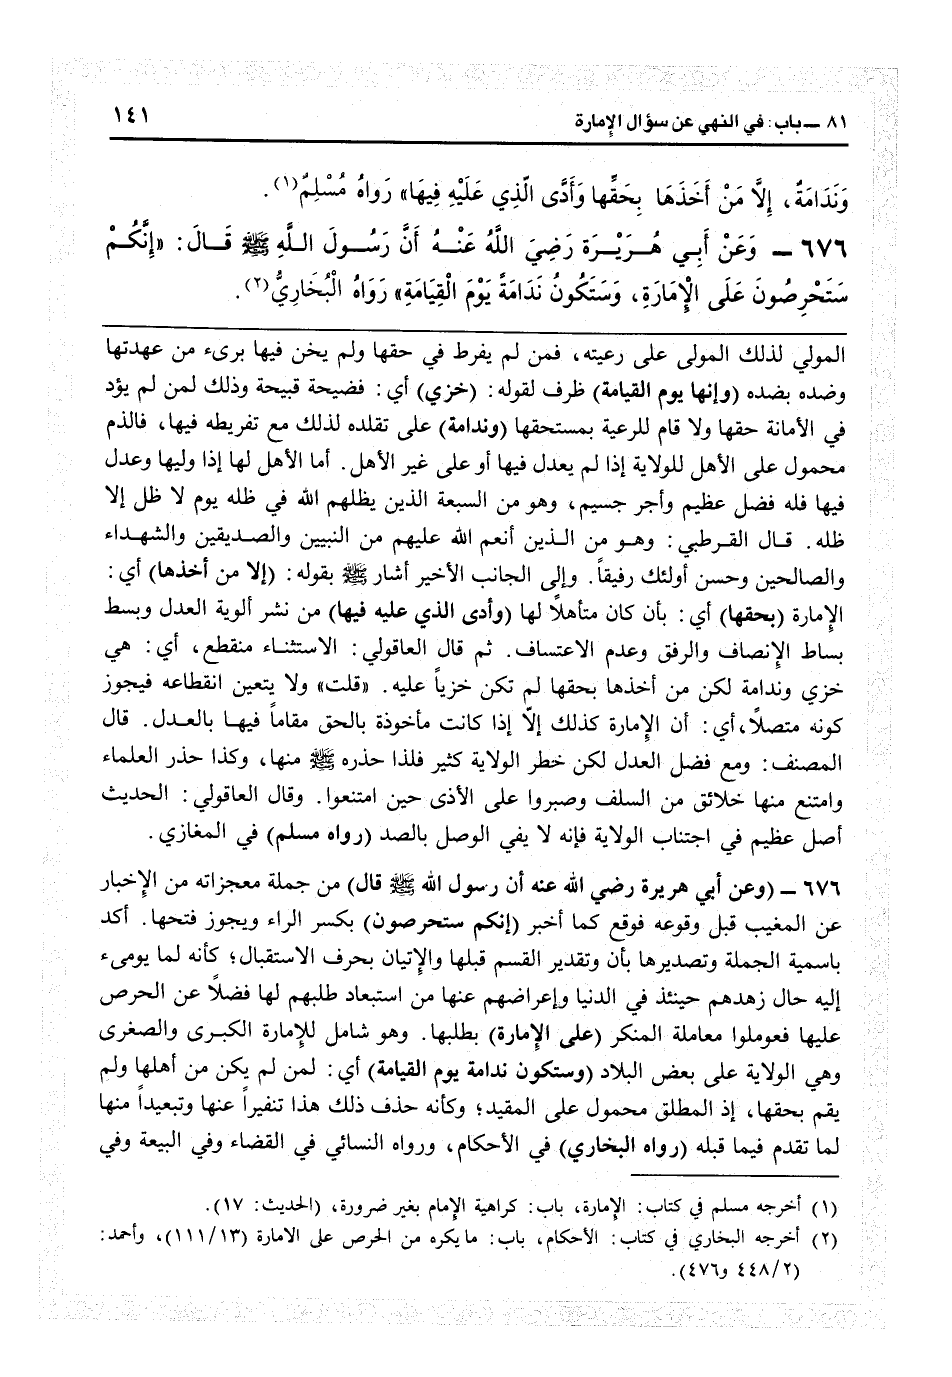 ٨١ ــ باب: في النهي عن سؤال الإمارة ١٤١
وَنَدَامَةٌ، إِلَّا مَنْ أَخَذَهَا بِحَقِّها وَأَدَّى الَّذِي عَلَيْهِ فِيهَا» رَواهُ مُسْلِمٌ(١).
٦٧٦ ــ وَعَنْ أَبِي هُرَيْرَة رَضِيَ اللَّهُ عَنْهُ أَنَّ رَسُولَ اللَّهِ ﷺ قَالَ: «إِنَّكُمْ
سَتَحْرِصُونَ عَلَى الْإِمَارَةِ، وَسَتَكُونُ نَدَامَةً يَوْمَ الْقِيَامَةِ» رَوَاهُ الْبُخَارِيُّ(٢).
المولي لذلك المولى على رعيته، فمن لم يفرط في حقها ولم يخن فيها برىء من عهدتها
وضده بضده (وإنها يوم القيامة) ظرف لقوله: (خزي) أي: فضيحة قبيحة وذلك لمن لم يؤد
في الأمانة حقها ولا قام للرعية بمستحقها (وندامة) على تقلده لذلك مع تفريطه فيها، فالذم
محمول على الأهل للولاية إذا لم يعدل فيها أو على غير الأهل. أما الأهل لها إذا وليها وعدل
فيها فله فضل عظيم وأجر جسيم، وهو من السبعة الذين يظلهم الله في ظله يوم لا ظل إلا
ظله. قال القرطبي: وهو من الذين أنعم الله عليهم من النبيين والصديقين والشهداء
والصالحين وحسن أولئك رفيقاً. وإلى الجانب الأخير أشار ﷺ بقوله: (إلا من أخذها) أي:
الإمارة (بحقها) أي: بأن كان متأهلاً لها (وأدى الذي عليه فيها) من نشر ألوية العدل وبسط
بساط الإنصاف والرفق وعدم الاعتساف. ثم قال العاقولي: الاستثناء منقطع، أي: هي
خزي وندامة لكن من أخذها بحقها لم تكن خزياً عليه. «قلت» ولا يتعين انقطاعه فيجوز
كونه متصلاً، أي: أن الإمارة كذلك إلّا إذا كانت مأخوذة بالحق مقاماً فيها بالعدل. قال
المصنف: ومع فضل العدل لكن خطر الولاية كثير فلذا حذره ﷺ منها، وكذا حذر العلماء
وامتنع منها خلائق من السلف وصبروا على الأذى حين امتنعوا. وقال العاقولي: الحديث
أصل عظيم في اجتناب الولاية فإنه لا يفي الوصل بالصد (رواه مسلم) في المغازي.
٦٧٦ ــ (وعن أبي هريرة رضي الله عنه أن رسول الله ﷺ قال) من جملة معجزاته من الإخبار
عن المغيب قبل وقوعه فوقع كما أخبر (إنكم ستحرصون) بكسر الراء ويجوز فتحها. أكد
باسمية الجملة وتصديرها بأن وتقدير القسم قبلها والإتيان بحرف الاستقبال؛ كأنه لما يومىء
إليه حال زهدهم حينئذ في الدنيا وإعراضهم عنها من استبعاد طلبهم لها فضلاً عن الحرص
عليها فعوملوا معاملة المنكر (على الإمارة) بطلبها. وهو شامل للإمارة الكبرى والصغرى
وهي الولاية على بعض البلاد (وستكون ندامة يوم القيامة) أي: لمن لم يكن من أهلها ولم
يقم بحقها، إذ المطلق محمول على المقيد؛ وكأنه حذف ذلك هذا تنفيراً عنها وتبعيداً منها
لما تقدم فيما قبله (رواه البخاري) في الأحكام، ورواه النسائي في القضاء وفي البيعة وفي
(١) أخرجه مسلم في كتاب: الإمارة، باب: كراهية الإمام بغير ضرورة، (الحديث: ١٧).
(٢) أخرجه البخاري في كتاب: الأحكام، باب: ما يكره من الحرص على الامارة (١١١/١٣)، وأحمد:
(٤٤٨/٢ و٤٧٦).